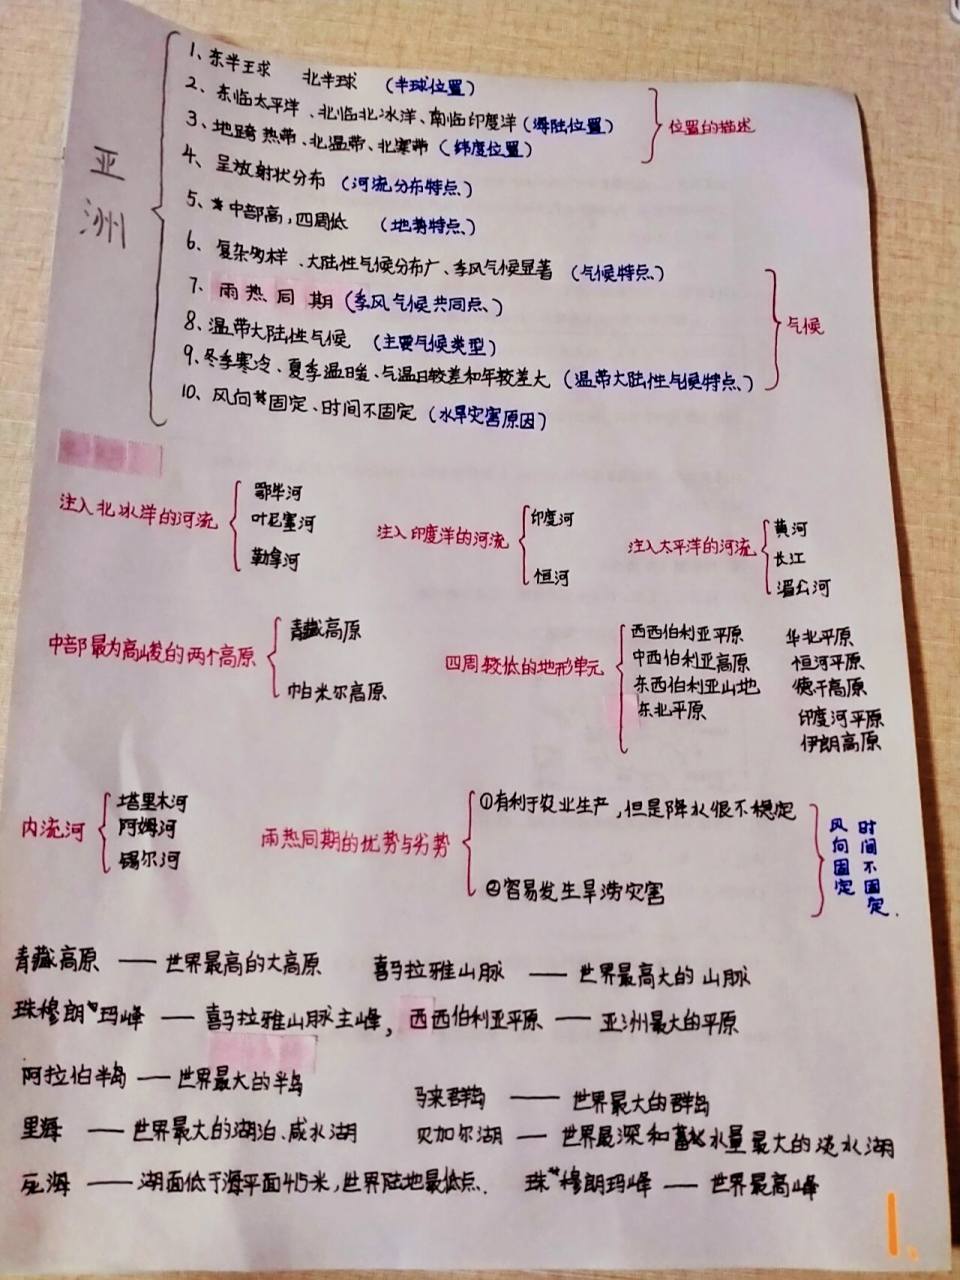 亚洲
1、东半球 北半球 (半球位置)
2、东临太平洋、北临北冰洋、南临印度洋(海陆位置)
3、地跨热带、北温带、北寒带(纬度位置)
位置的描述
4、呈放射状分布(河流分布特点)
5、中部高,四周低(地势特点)
6、复杂多样、大陆性气候分布广、季风气候显著(气候特点)
7、雨热同期(季风气候共同点)
8、温带大陆性气候(主要气候类型)
9、冬季寒冷、夏季温暖、气温日较差和年较差大(温带大陆性气候特点)
气候
10、风向固定、时间不固定(水旱灾害原因)
注入北冰洋的河流
鄂毕河
叶尼塞河
勒拿河
注入印度洋的河流
印度河
恒河
注入太平洋的河流
黄河
长江
湄公河
中部最为高峻的两个高原
青藏高原
帕米尔高原
四周较低的地形单元
西西伯利亚平原 华北平原
中西伯利亚高原 恒河平原
东西伯利亚山地 德干高原
东北平原 印度河平原
伊朗高原
内流河
塔里木河
阿姆河
锡尔河
雨热同期的优势与劣势
①有利于农业生产,但是降水很不稳定
②容易发生旱涝灾害
风向固定
时间不固定.
青藏高原——世界最高的大高原 喜马拉雅山脉——世界最高大的山脉
珠穆朗玛峰——喜马拉雅山脉主峰, 西西伯利亚平原——亚洲最大的平原
阿拉伯半岛——世界最大的半岛 马来群岛——世界最大的群岛
里海——世界最大的湖泊、咸水湖 贝加尔湖——世界最深和蓄水量最大的淡水湖
死海——湖面低于海平面415米,世界陆地最低点. 珠穆朗玛峰——世界最高峰
1.